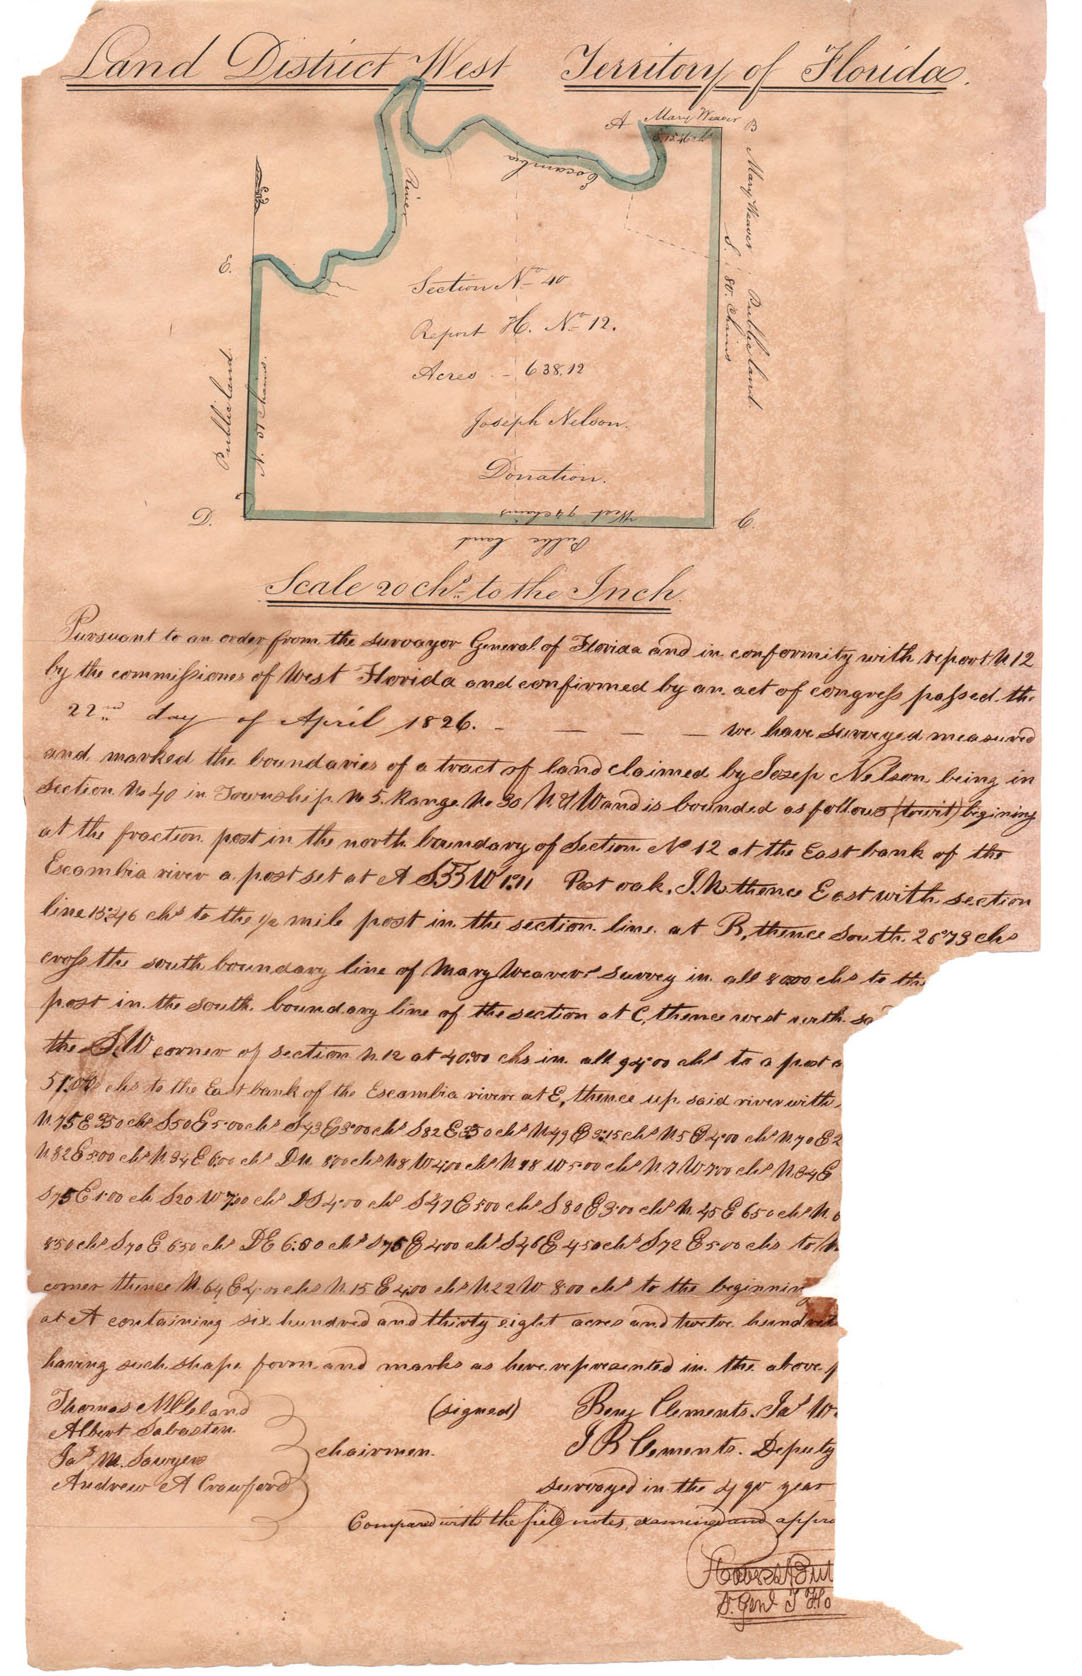 Land District West Territory of Florida.
A Mary Weaver B
15.46 chs
Escambia
River
Mary Weaver Public land.
S. 80. Chains
E.
Section No 40
Report H. No 12.
Acres - 638.12
Joseph Nelson.
Donation.
Public land
N. 51 Chains.
D. West 94 chains C.
Public land
Scale 20 chs. to the Inch
Pursuant to an order from the survayor General of Florida and in conformity with report N 12
by the commissiones of West Florida and confirmed by an act of congress passed the
22nd day of April 1826. - — — — we have surveyed measured
and marked the boundaries of a tract of land claimed by Josep Nelson being in
section No 40 in Township No 5. Range No 30 N & W and is bounded as follows (towit) begining
at the fraction post in the north boundary of Section No 12 at the East bank of the
Escambia river a post set at A S55W 1.11 Post oak, J.N thence East with section
line 15.46 chs to the 1/2 mile post in the section line at B, thence South. 26.73 chs
cross the south boundary line of Mary Weavers survey in all 80.00 chs to the
post in the south boundary line of the section at C, thence west with sa
the S.W corner of section N 12 at 40.00 chs in all 94.00 chs to a post a
51.00 chs to the East bank of the Escambia rivire at E, thence up said river with
N.75 E 3.50 chs S50 E 5.00 chs S43 E 3.00 chs S82 E 3.50 chs N49 E 3.15 chs N5 E 4.00 chs N70 E 2
N82 E 5.00 chs N34 E 6.00 chs DN. 8.00 chs N8 W 4.00 chs N28 W 5.00 chs N.7 W 7.00 chs N.34 E
S75 E 1.00 ch S20 W 7.00 chs DS 4.00 chs S47 E 5.00 chs S80 E 3.00 chs N.45 E 6.50 chs N. 6
8.50 chs S70 E 6.50 chs DE 6.50 chs S76 E 4.00 chs S46 E 4.50 chs S72 E 5.00 chs to
corner thence N.64 E 4.00 chs N.15 E 4.00 chs N22 W 8.00 chs to the beginning
at A containing six hundred and thirty eight acres and twelve hundret
having such shape form and marks as here represented in the above p
Thomas McCleland (signed) Benj Clements. Jas W.
Albert Sabasten
Jas M. Sawyers chairmen. J B Clements. Deputy
Andrew A Crawford surveyed in the 49° year
Compared with the field notes, examined and appro
Robert But
S. Genl T Flo